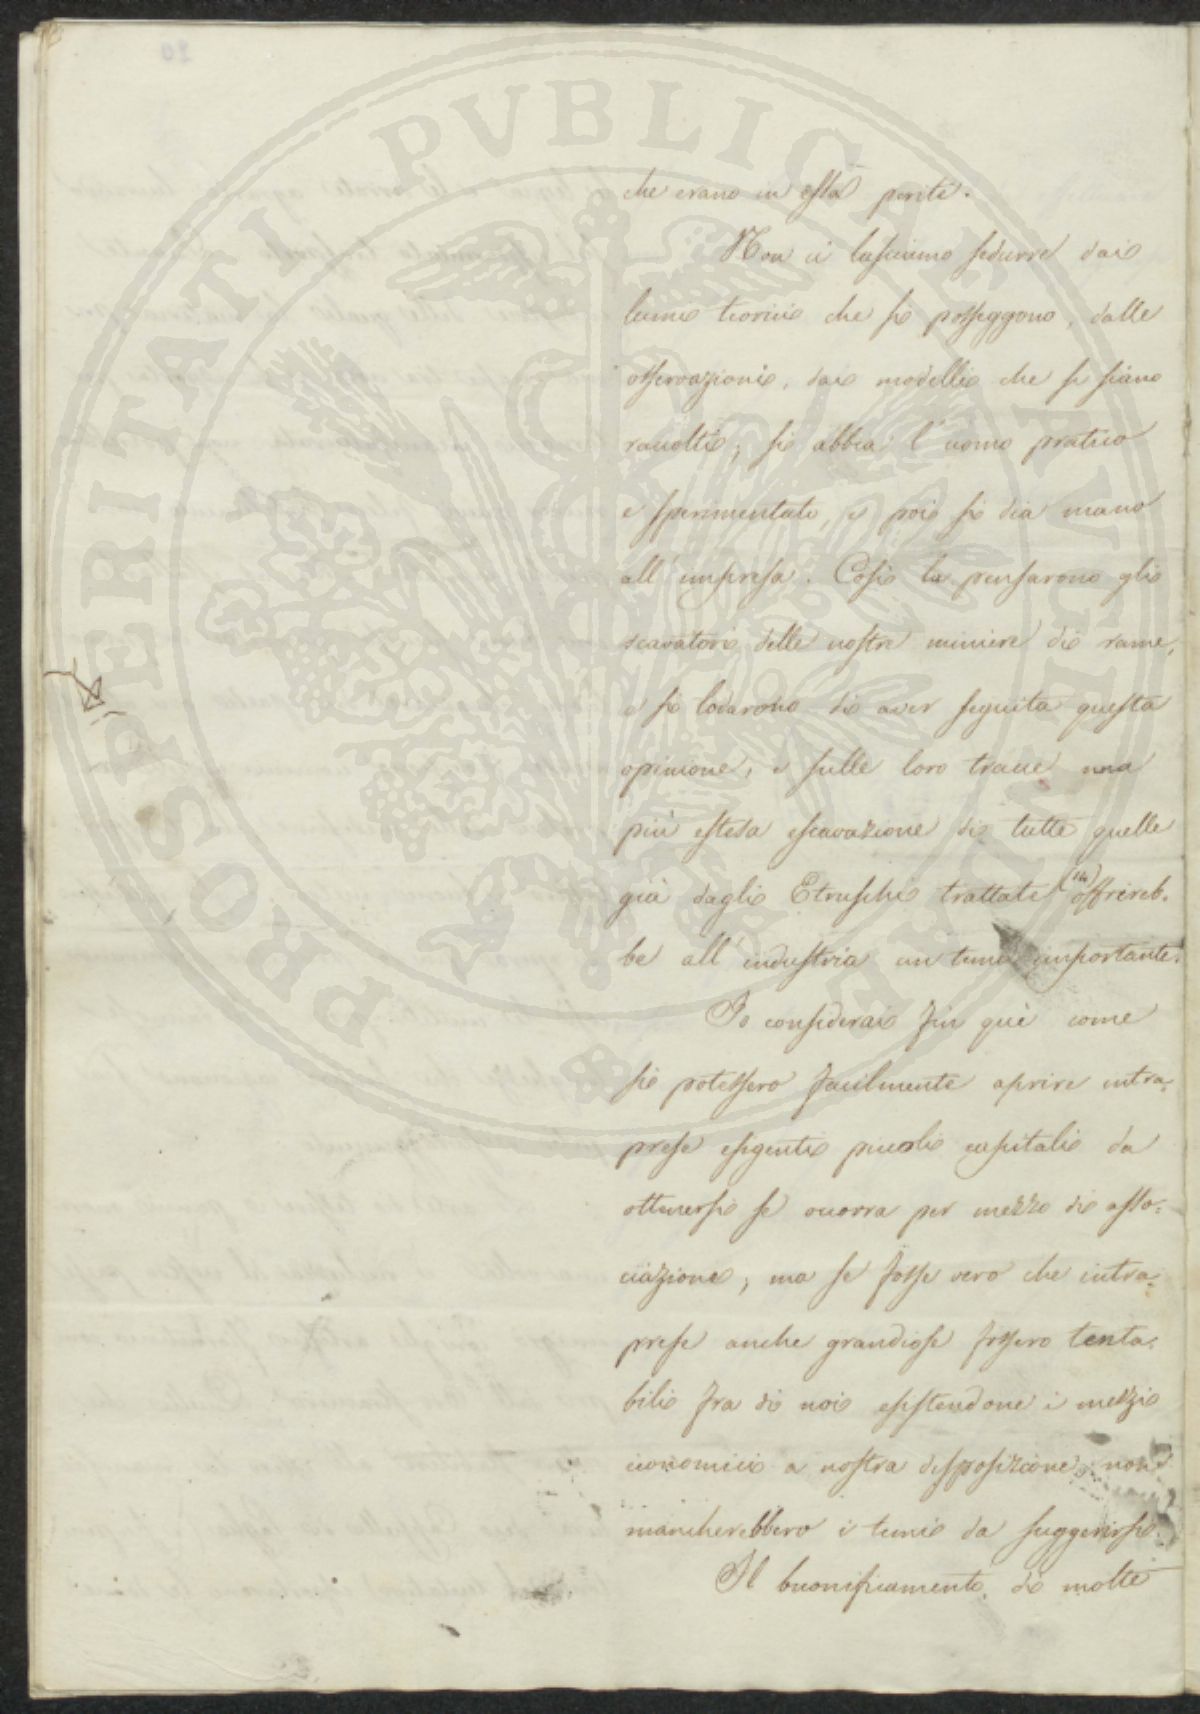 che erano in essa periti.
Non ci lasciamo sedurre dai
lumi teorici che si posseggono, dalle
osservazioni, dai modelli che si siano
raccolti; si abbia l'uomo pratico
e sperimentato, e poi si dia mano
all'impresa. Così la pensarono gli
scavatori delle nostre miniere di rame,
e si lodarono di aver seguita questa
opinione, e sulle loro tracce una
più estesa escavazione di tutte quelle
già dagli Etruschi trattate (14) offrireb-
be all'industria un tema importante.
Io considerai fin quì come
si potessero facilmente aprire intra-
prese esigenti piccoli capitali da
ottenersi se occorra per mezzo di asso-
ciazione; ma se fosse vero che intra-
prese anche grandiose fossero tenta-
bili fra di noi esistendone i mezzi
economici a nostra disposizione, non
mancherebbero i temi da suggerirsi.
Il buonificamento di molte
PROSPERITATI PVBLICAE AVGENDAE